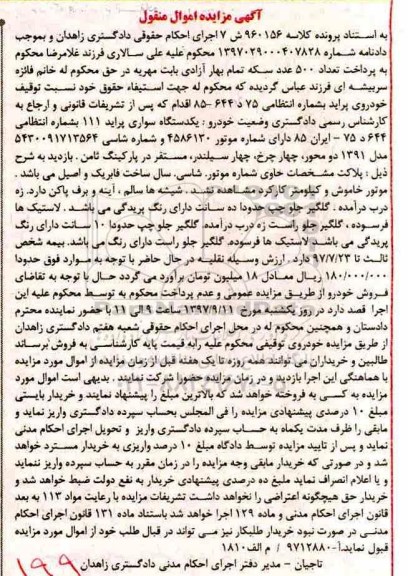 آگهی مزایده اموال منقول
به استناد پرونده کلاسه ۹۶۰۱۵۶ ش ۷ اجرای احکام حقوقی دادگستری زاهدان و بموجب
دادنامه شماره ۱۳۹۷۰۲۹۰۰۰۴۰۷۸۲۸ محکوم علیه علی سالاری فرزند غلامرضا محکوم
به پرداخت تعداد ۵۰۰ عدد سکه تمام بهار آزادی بابت مهریه در حق محکوم له خانم فائزه
سربیشه ای فرزند عباس گردیده که محکوم له جهت استیفاء حقوق خود نسبت توقیف
خودروی پراید بشماره انتظامی ۷۵ د ۶۴۴ -۸۵ اقدام که پس از تشریفات قانونی و ارجاع به
کارشناس رسمی دادگستری وضعیت خودرو : یکدستگاه سواری پراید ۱۱۱ بشماره انتظامی
۶۴۴ د ۷۵ - ایران ۸۵ دارای شماره موتور ۴۵۸۶۱۳۰ و شماره شاسی ۵۴۳۰۰۹۱۷۱۳۵۶۴
مدل ۱۳۹۱ دو محور، چهار چرخ، چهار سیلندر، مستقر در پارکینگ ثامن . بازدید به شرح
ذیل : پلاکت مشخصات حاوی شماره موتور، شاسی، سال ساخت فابریک و اصیل می باشد .
موتور خاموش و کیلومتر کارکرد مشاهده نشد . شیشه ها سالم ، آینه و برف پاکن دارد. زه
درب درآمده . گلگیر جلو چپ حدودا ده سانت دارای رنگ پریدگی می باشد . لاستیک ها
فرسوده ، گلگیر جلو راست زه درب درآمده، گلگیر جلو چپ حدودا ۱۰ سانت دارای رنگ
پریدگی می باشد. لاستیک ها فرسوده. گلگیر جلو راست دارای رنگ می باشد. بیمه شخص
ثالث تا ۹۷/۷/۲۳ دارد . ارزش وسیله نقلیه در حال حاضر با توجه به موارد فوق حدودا
۱۸۰/۰۰۰/۰۰۰ ریال معادل ۱۸ میلیون تومان برآورد می گردد حال با توجه به تقاضای
فروش خودرو از طریق مزایده عمومی و عدم پرداخت محکوم به توسط محکوم علیه این
اجرا قصد دارد در روز یکشنبه مورخ ۱۳۹۷/۹/۱۱ ساعت ۹ الی ۱۱ با حضور نماینده محترم
دادستان و همچنین محکوم له در محل اجرای احکام حقوقی شعبه هفتم دادگستری زاهدان
از طریق مزایده خودروی توقیفی محکوم علیه رابه قیمت پایه کارشناسی به فروش برساند
طالبین و خریداران می توانند همه روزه تا یک هفته قبل از زمان مزایده از اموال مورد مزایده
با هماهنگی این اجرا بازدید و در زمان مزایده حضور شرکت نمایند . بدیهی است اموال مورد
مزایده به کسی به فروخته خواهد شد که بالاترین مبلغ را پیشنهاد نمایند و خریدار بایستی
مبلغ ۱۰ درصدی پیشنهادی مزایده را فی المجلس بحساب سپرده دادگستری واریز نماید و
مابقی را ظرف مدت یکماه به حساب سپرده دادگستری واریز و تحویل اجرای احکام مدنی
نماید و پس از تایید مزایده توسط دادگاه مبلغ ۱۰ درصد واریزی به خریدار مسترد خواهد
شد و در صورتی که خریدار مابقی وجه مزایده را در زمان مقرر به حساب سپرده واریز ننماید
و یا اعلام انصراف نماید ملبغ ده درصدی پیشنهادی خریدار به نفع دولت ضبط خواهد شد و
خریدار حق هیچگونه اعتراضی را نخواهد داشت تشریفات مزایده با رعایت مواد ۱۱۳ به بعد
قانون اجرای احکام مدنی و ماده ۱۲۹ اجرا خواهد شد باستناد ماده ۱۳۱ قانون اجرای احکام
مدنی در صورت نبود خریدار طلبکار نیز می تواند در قبال طلب خود از اموال مورد مزایده
قبول نماید.آ-۹۷۱۲۸۸۰ / م الف ۱۸۱۰
تاجیان - مدیر دفتر اجرای احکام مدنی دادگستری زاهدان
۱۹۹